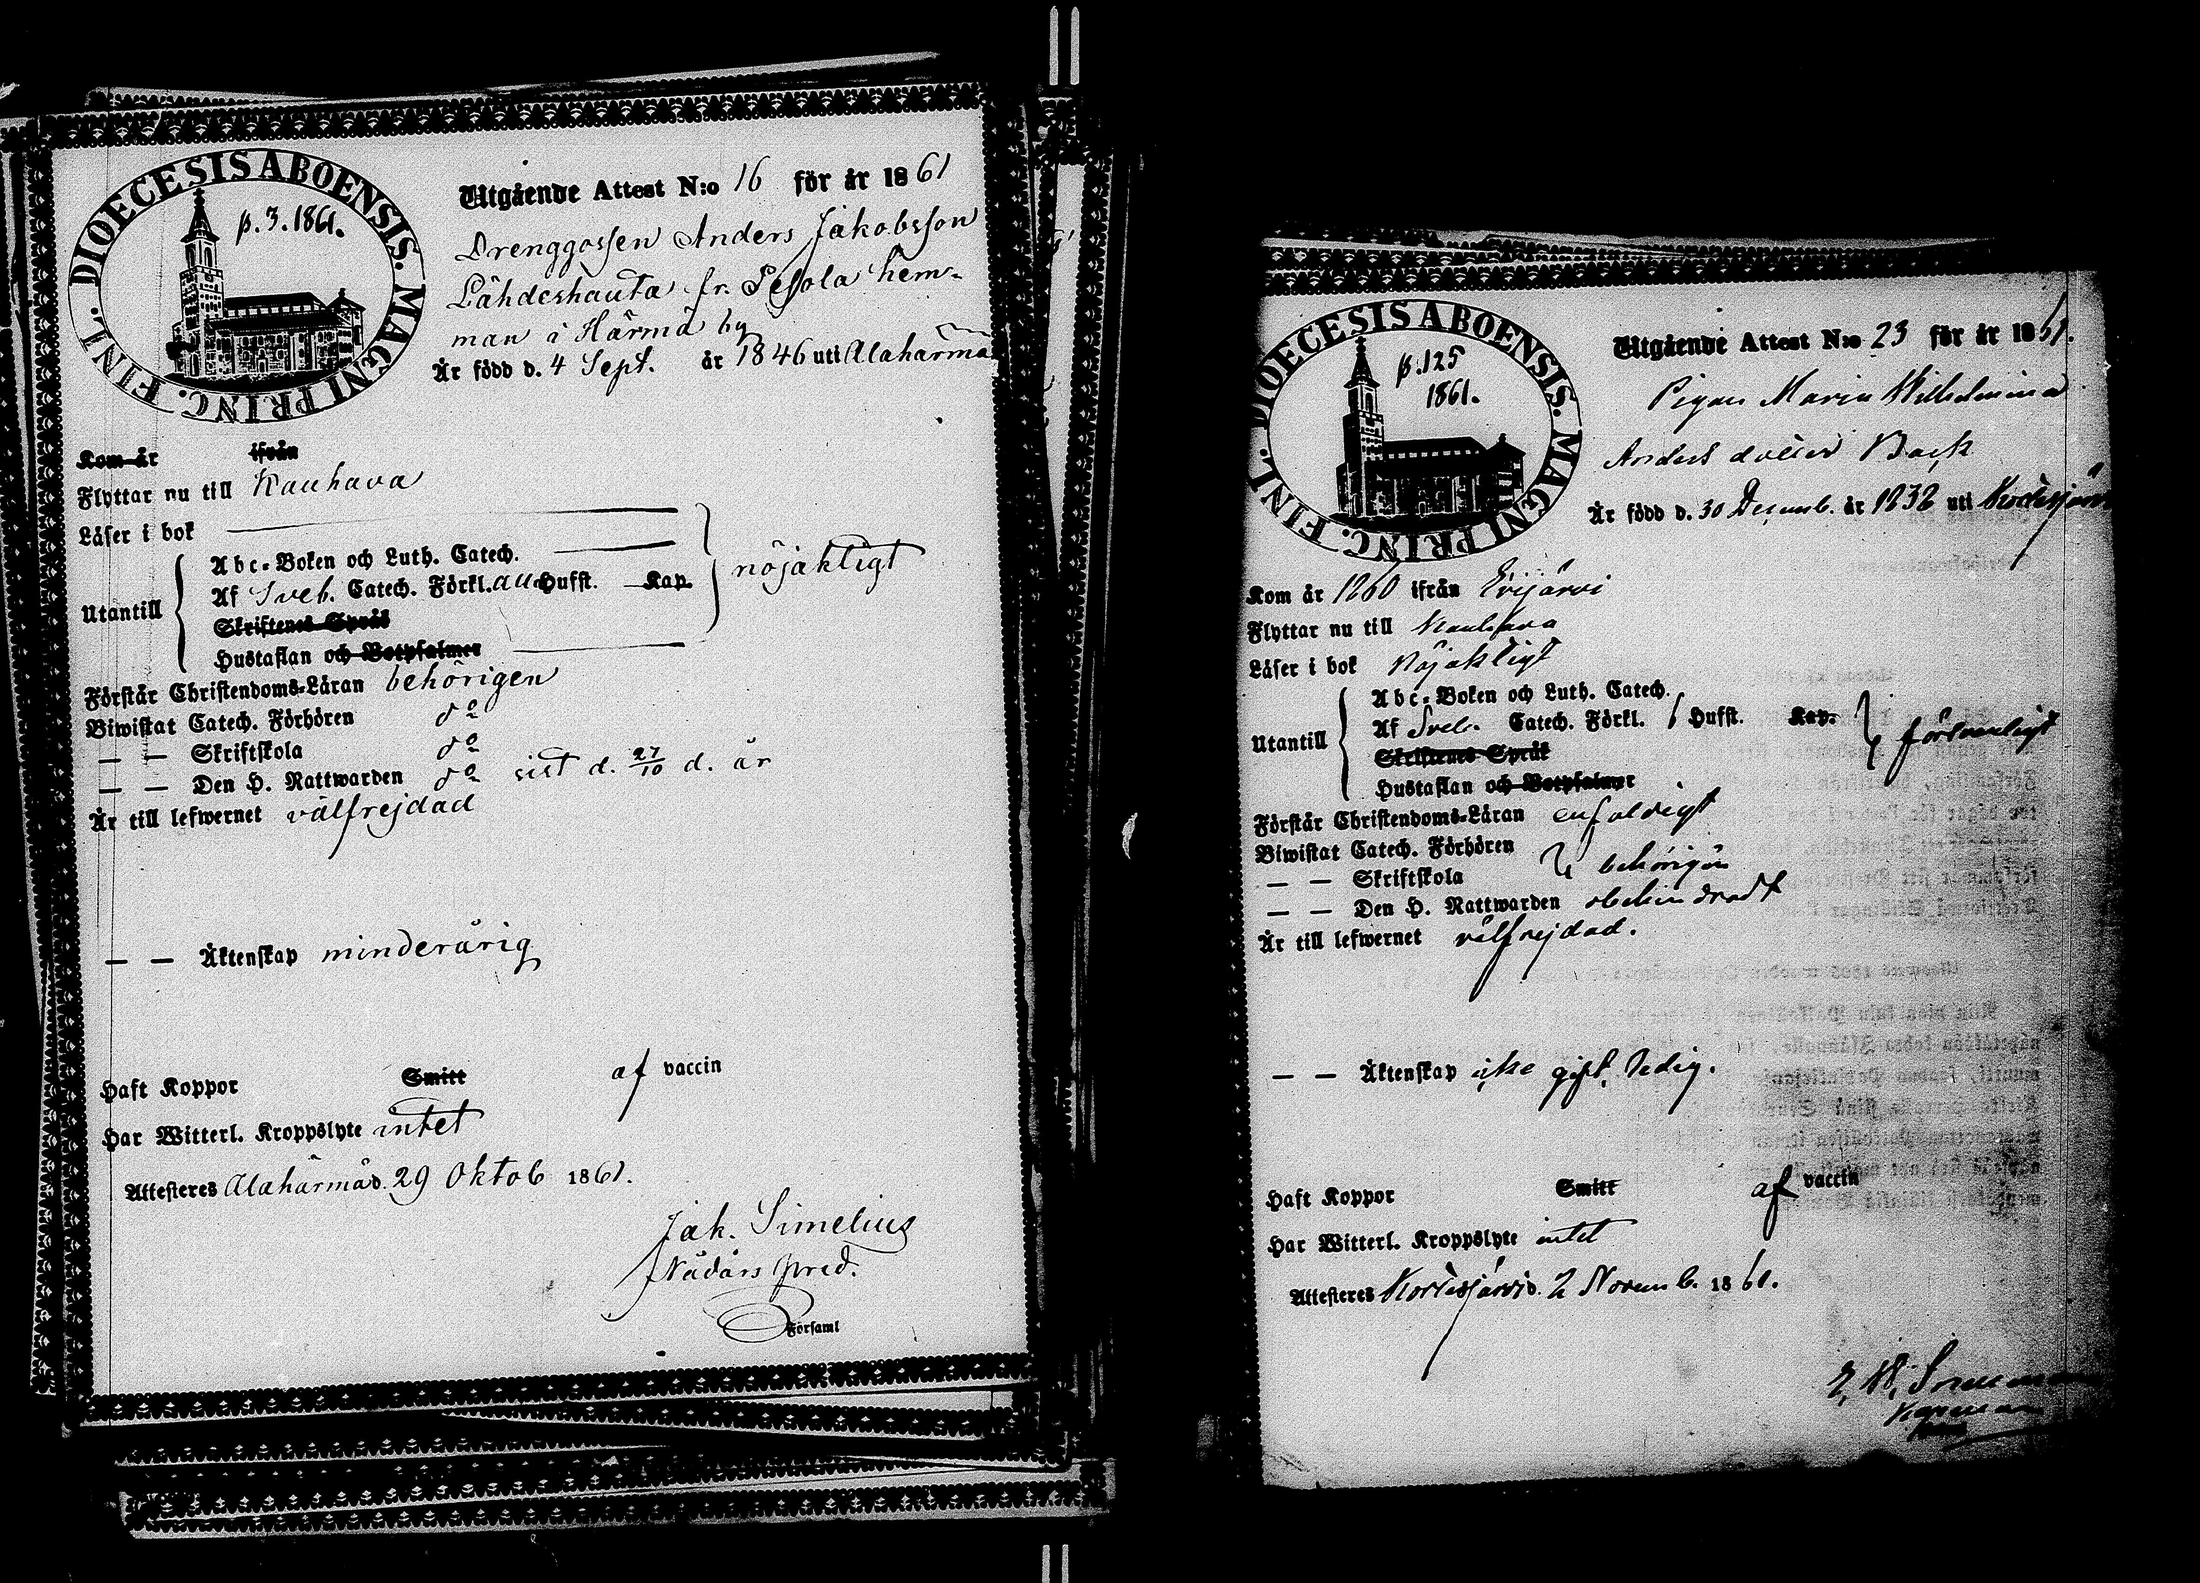 DIOECESIS ABOENSIS. MAGNI PRINC. FINL.
p. 3. 1861.
Utgående Attest N:o 16 för år 1861
Drenggossen Anders Jakobsson
Lähdeshauta fr. Pesola hem-
man i Härmä by
Är född d. 4 Sept. år 1846 uti Alahärmä
Kom år ifrån
Flyttar nu till Kauhava
Läser i bok
Utantill
Abc-Boken och Luth. Catech.
Af Sveb. Catech. Förkl. all Hufst. Kap.
Skriftenes Språk
Hustaflan och Botpsalmer
nöjaktigt
Förstår Christendoms-Läran behörigen
Biwistat Catech. Förhören do
— — Skriftskola do
— — Den H. Nattwarden do sist d. 27/10 d. år
Är till lefwernet välfrejdad
— — Äktenskap minderårig
Haft Koppor Smitt af vaccin
Har Witterl. Kroppslyte intet
Attesteras Alahärmä d. 29 Oktob 1861.
Jak. Simelius
Nådårs pred.
Församl
DIOECESIS ABOENSIS. MAGNI PRINC. FINL.
p. 125
1861.
Utgående Attest N:o 23 för år 1861.
Pigan Maria Wilhelmina
Anders dotter Back
Är född d. 30 Decemb. år 1838 uti Kortesjärvi
Kom år 1860 ifrån Evijärvi
Flyttar nu till Kauhava
Läser i bok Nöjaktigt
Utantill
Abc-Boken och Luth. Catech.
Af Sveb. Catech. Förkl. Hufst. Kap.
Skriftenes Språk
Hustaflan och Botpsalmer
försvarligt
Förstår Christendoms-Läran enfaldigt
Biwistat Catech. Förhören
— — Skriftskola behörigen
— — Den H. Nattwarden obehindradt
Är till lefwernet välfrejdad.
— — Äktenskap icke gift, ledig.
Haft Koppor Smitt af vaccin
Har Witterl. Kroppslyte intet
Attesteras Kortesjärvi d. 2 Novemb. 1861.